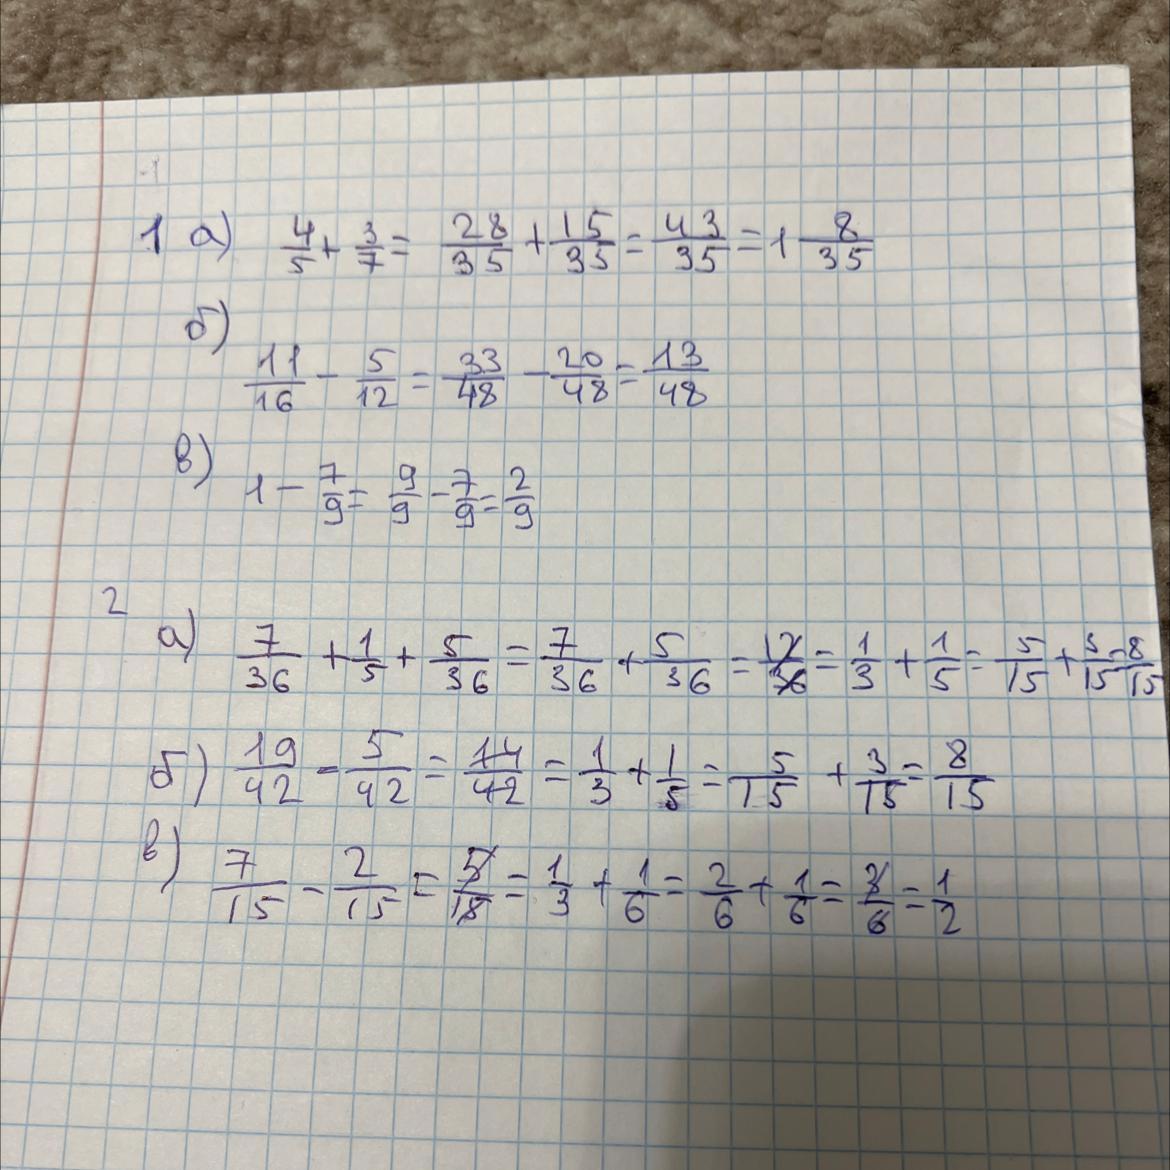 1 а) 4/5 + 3/7 = 28/35 + 15/35 = 43/35 = 1 8/35
б)
11/16 - 5/12 = 33/48 - 20/48 = 13/48
в) 1 - 7/9 = 9/9 - 7/9 = 2/9
2
а) 7/36 + 1/5 + 5/36 = 7/36 + 5/36 = 12/36 = 1/3 + 1/5 = 5/15 + 3/15 = 8/15
б) 19/42 - 5/42 = 14/42 = 1/3 + 1/5 = 5/15 + 3/15 = 8/15
в) 7/15 - 2/15 = 5/15 = 1/3 + 1/6 = 2/6 + 1/6 = 3/6 = 1/2